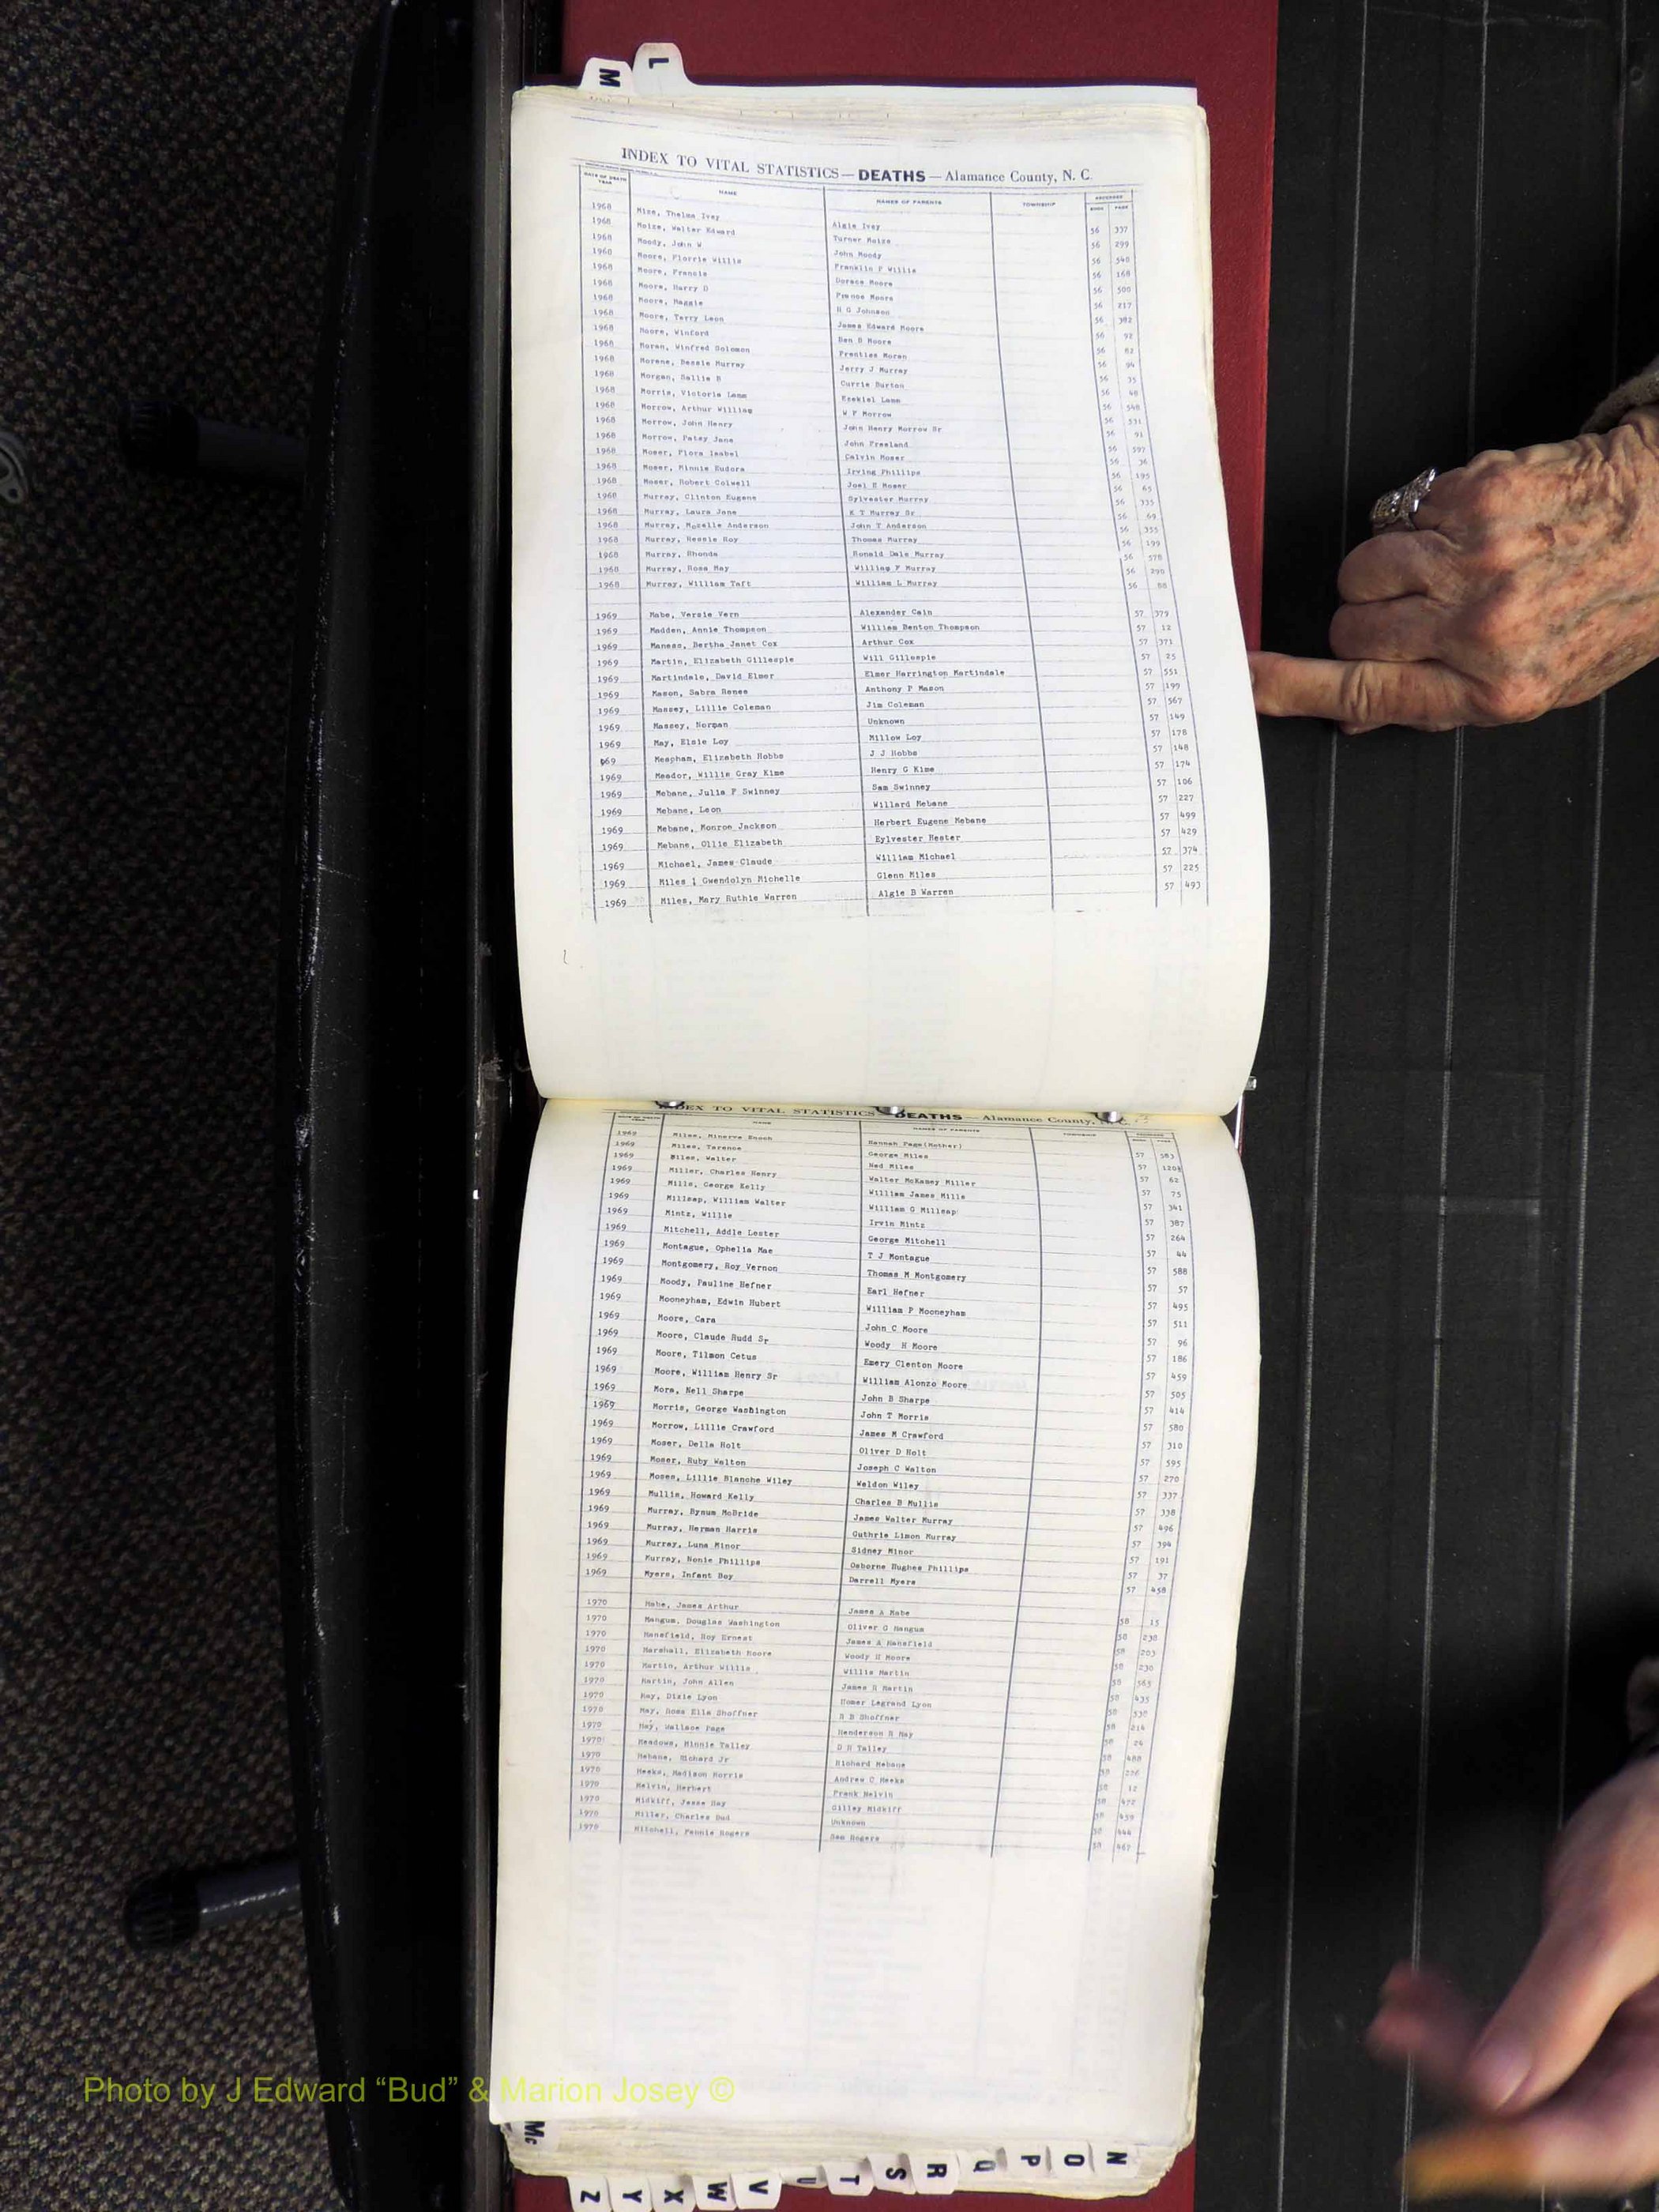 L
M
INDEX TO VITAL STATISTICS — DEATHS — Alamance County, N. C.
DATE OF DEATH YEAR NAME NAMES OF PARENTS TOWNSHIP RECORDED BOOK PAGE
1968 Mize, Thelma Ivey Algie Ivey 56 337
1968 Moize, Walter Edward Turner Moize 56 299
1968 Moody, John W John Moody 56 540
1968 Moore, Florrie Willis Franklin P Willis 56 168
1968 Moore, Francis Dorace Moore 56 500
1968 Moore, Harry D Prence Moore 56 217
1968 Moore, Maggie H G Johnson 56 382
1968 Moore, Terry Leon James Edward Moore 56 92
1968 Moore, Winford Ben B Moore 56 82
1968 Moran, Winfred Solomon Prentiss Moran 56 94
1968 Morene, Bessie Murray Jerry J Murray 56 35
1968 Morgan, Sallie B Currie Burton 56 48
1968 Morris, Victoria Lamm Ezekiel Lamm 56 548
1968 Morrow, Arthur William W F Morrow 56 531
1968 Morrow, John Henry John Henry Morrow Sr 56 91
1968 Morrow, Patsy Jane John Freeland 56 597
1968 Moser, Flora Isabel Calvin Moser 56 36
1968 Moser, Minnie Eudora Irving Phillips 56 195
1968 Moser, Robert Colwell Joel E Moser 56 65
1968 Murray, Clinton Eugene Sylvester Murray 56 335
1968 Murray, Laura Jane K T Murray Sr 56 69
1968 Murray, Mozelle Anderson John T Anderson 56 355
1968 Murray, Nessie Roy Thomas Murray 56 199
1968 Murray, Rhonda Ronald Dale Murray 56 578
1968 Murray, Rosa May William F Murray 56 290
1968 Murray, William Taft William L Murray 56 88
1969 Mabe, Versie Vern Alexander Cain 57 379
1969 Madden, Annie Thompson William Denton Thompson 57 12
1969 Maness, Bertha Janet Cox Arthur Cox 57 371
1969 Martin, Elizabeth Gillespie Will Gillespie 57 25
1969 Martindale, David Elmer Elmer Harrington Martindale 57 551
1969 Mason, Sabra Renee Anthony P Mason 57 199
1969 Massey, Lillie Coleman Jim Coleman 57 567
1969 Massey, Norman Unknown 57 149
1969 May, Elsie Loy Millow Loy 57 178
69 Meapham, Elizabeth Hobbs J J Hobbs 57 148
1969 Meador, Willie Gray Kime Henry G Kime 57 174
1969 Mebane, Julia F Swinney Sam Swinney 57 106
1969 Mebane, Leon Willard Mebane 57 227
1969 Mebane, Monroe Jackson Herbert Eugene Mebane 57 499
1969 Mebane, Ollie Elizabeth Eylvester Hester 57 429
1969 Michael, James Claude William Michael 57 374
1969 Miles, Gwendolyn Michelle Glenn Miles 57 225
1969 Miles, Mary Ruthie Warren Algie B Warren 57 493
INDEX TO VITAL STATISTICS — DEATHS — Alamance County, N. C.
NAME NAMES OF PARENTS TOWNSHIP
1969 Miles, Minerva Enoch Hannah Page(Mother) 57 583
1969 Miles, Terence George Miles 57 120½
1969 Miles, Walter Ned Miles 57 62
1969 Miller, Charles Henry Walter McKamey Miller 57 75
1969 Mills, George Kelly William James Mills 57 341
1969 Millsap, William Walter William G Millsap 57 387
1969 Mintz, Willie Irvin Mintz 57 264
1969 Mitchell, Addie Lester George Mitchell 57 44
1969 Montague, Ophelia Mae T J Montague 57 588
1969 Montgomery, Roy Vernon Thomas M Montgomery 57 57
1969 Moody, Pauline Hefner Earl Hefner 57 495
1969 Mooneyham, Edwin Hubert William P Mooneyham 57 511
1969 Moore, Cara John C Moore 57 96
1969 Moore, Claude Rudd Sr Woody H Moore 57 186
1969 Moore, Tilmon Cetus Emery Clenton Moore 57 459
1969 Moore, William Henry Sr William Alonzo Moore 57 505
1969 Mora, Nell Sharpe John B Sharpe 57 414
1969 Morris, George Washington John T Morris 57 580
1969 Morrow, Lillie Crawford James M Crawford 57 310
1969 Moser, Della Holt Oliver D Holt 57 595
1969 Moser, Ruby Walton Joseph C Walton 57 270
1969 Moses, Lillie Blanche Wiley Weldon Wiley 57 337
1969 Mullis, Howard Kelly Charles B Mullis 57 338
1969 Murray, Bynum McBride James Walter Murray 57 496
1969 Murray, Herman Harris Guthrie Limon Murray 57 394
1969 Murray, Luna Minor Sidney Minor 57 191
1969 Murray, Nonie Phillips Osborne Hughes Phillips 57 37
1969 Myers, Infant Boy Darrell Myers 57 458
1970 Mabe, James Arthur James A Mabe 58 15
1970 Mangum, Douglas Washington Oliver G Mangum 58 238
1970 Mansfield, Roy Ernest James A Mansfield 58 203
1970 Marshall, Elizabeth Moore Woody H Moore 58 230
1970 Martin, Arthur Willis Willis Martin 58 565
1970 Martin, John Allen James R Martin 58 435
1970 May, Dixie Lyon Homer Legrand Lyon 58 530
1970 May, Rosa Ella Shoffner R B Shoffner 58 214
1970 May, Wallace Page Henderson R May 58 24
1970 Meadows, Minnie Talley D H Talley 58 488
1970 Mebane, Richard Jr Richard Mebane 58 226
1970 Meeks, Madison Morris Andrew C Meeks 58 12
1970 Melvin, Herbert Frank Melvin 58 472
1970 Midkiff, Jesse Ray Gilley Midkiff 58 459
1970 Miller, Charles Bud Unknown 58 444
1970 Mitchell, Fannie Rogers Sam Rogers 58 467
Photo by J Edward “Bud” & Marion Josey ©
Mc
N O P Q R S T U V W X Y Z